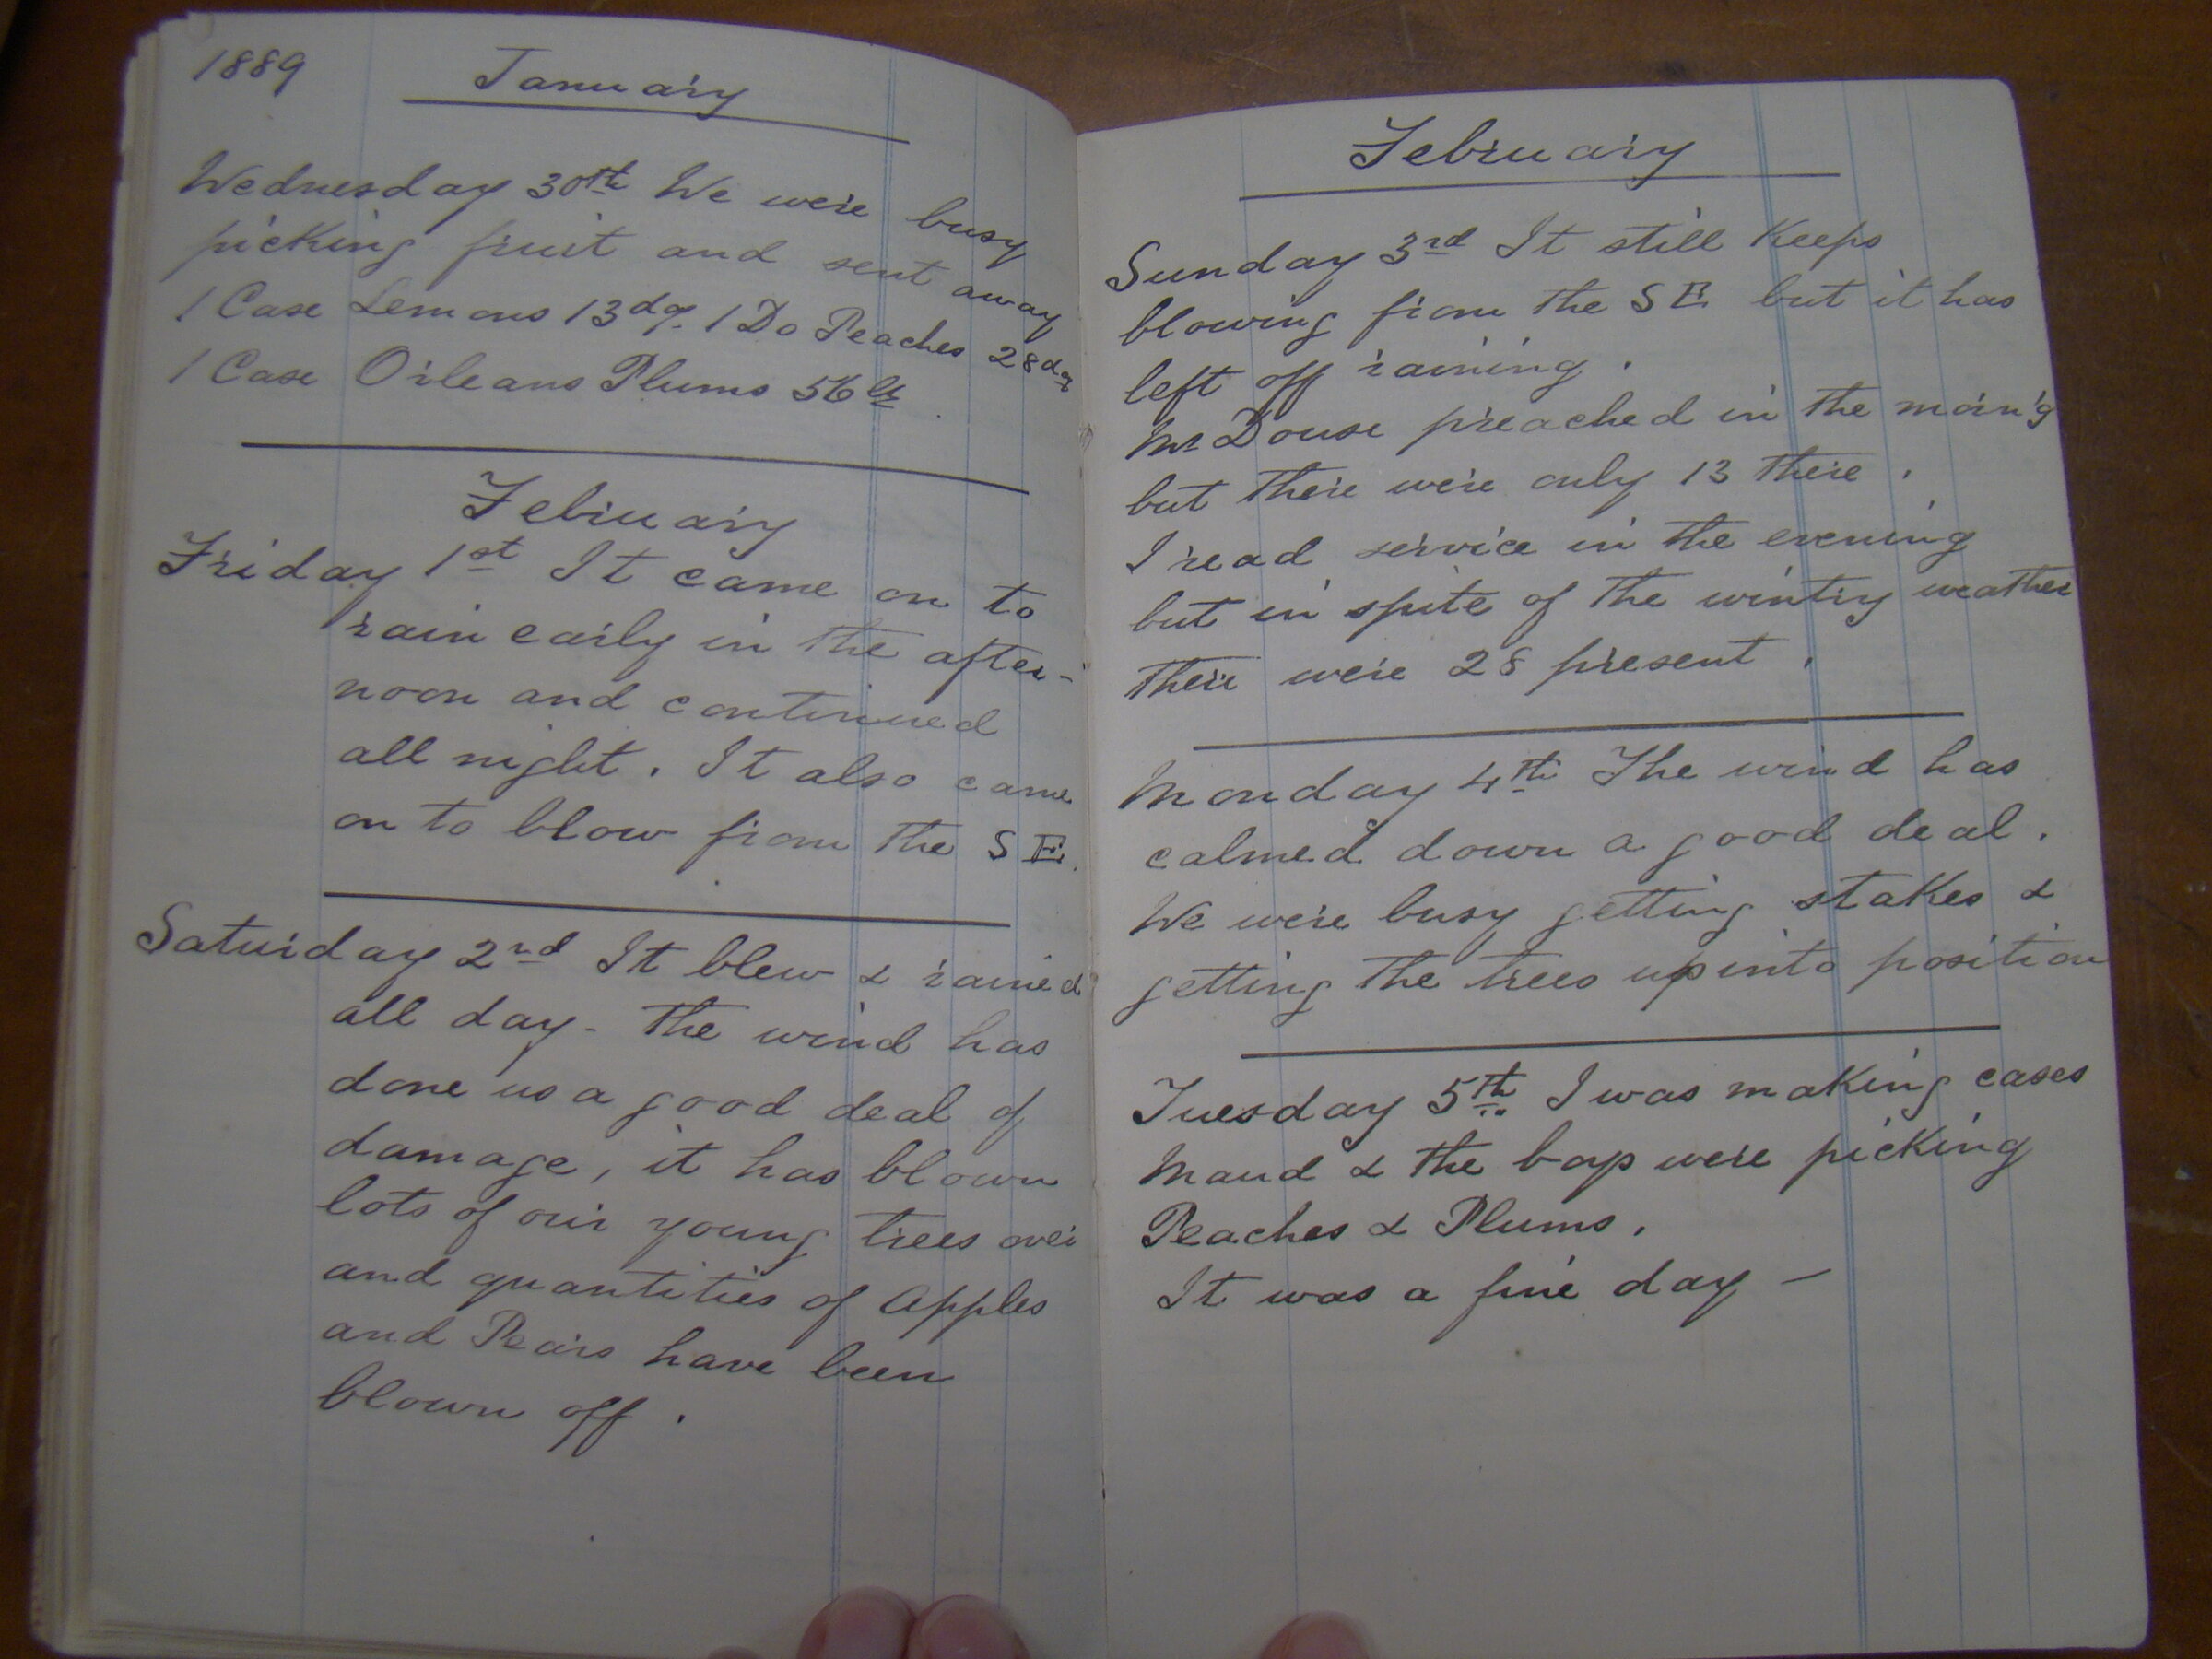 1889
January
Wednesday 30th We were busy
picking fruit and sent away
1 Case Lemons 13 dz. 1 Do Peaches 28 dz
1 Case Orleans Plums 56 lb.
February
Friday 1st It came on to
rain early in the after-
noon and continued
all night. It also came
on to blow from the S E.
Saturday 2nd It blew & rained
all day - the wind has
done us a good deal of
damage, it has blown
lots of our young trees over
and quantities of Apples
and Pears have been
blown off.
February
Sunday 3rd It still Keeps
blowing from the S E but it has
left off raining.
Mr Douse preached in the morn'g
but there were only 13 there.
I read service in the evening
but in spite of the wintry weather
there were 28 present.
Monday 4th The wind has
calmed down a good deal.
We were busy getting stakes &
getting the trees up into position
Tuesday 5th I was making cases
Maud & the boys were picking
Peaches & Plums.
It was a fine day —